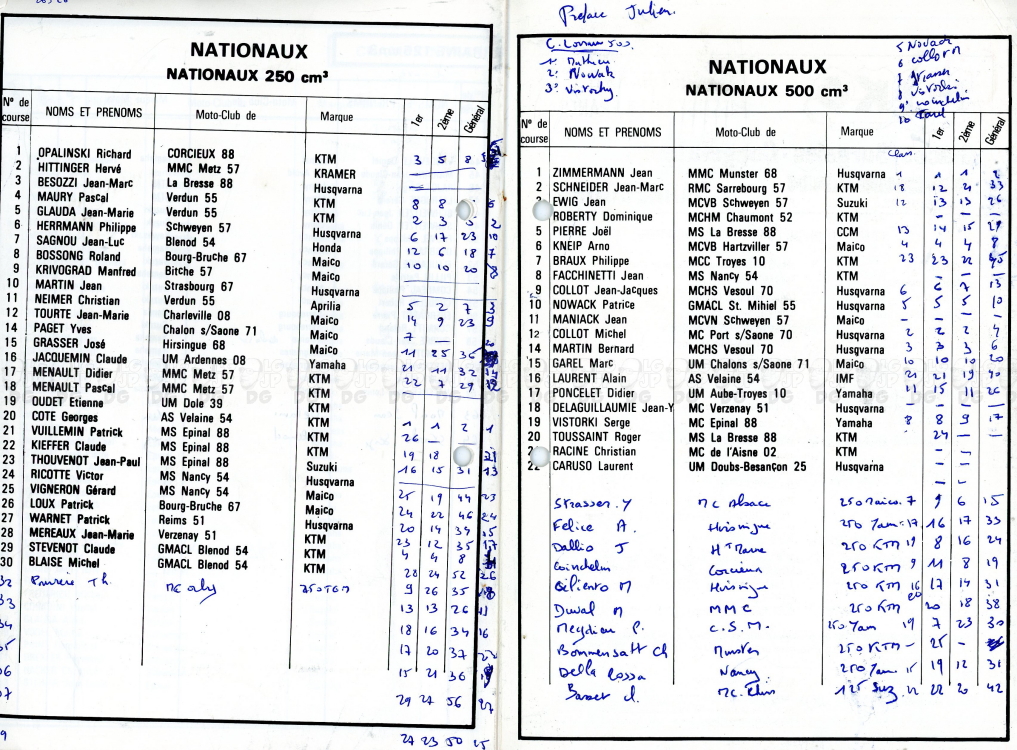 NATIONAUX
NATIONAUX 250 cm³
N° de course NOMS ET PRENOMS Moto-Club de Marque 1er 2ème Général
1 OPALINSKI Richard CORCIEUX 88 KTM 3 5 8
2 HITTINGER Hervé MMC Metz 57 KRAMER
3 BESOZZI Jean-Marc La Bresse 88 Husqvarna
4 MAURY Pascal Verdun 55 KTM 8 8
5 GLAUDA Jean-Marie Verdun 55 KTM 2 3
6 HERRMANN Philippe Schweyen 57 Husqvarna 6 17 23 10
7 SAGNOU Jean-Luc Blenod 54 Honda 12 6 18 7
8 BOSSONG Roland Bourg-Bruche 67 Maico 10 10 20 8
9 KRIVOGRAD Manfred Bitche 57 Maico
10 MARTIN Jean Strasbourg 67 Husqvarna
11 NEIMER Christian Verdun 55 Aprilia 5 2 7 3
12 TOURTE Jean-Marie Charleville 08 Maico 14 9 23 9
14 PAGET Yves Chalon s/Saone 71 Maico 7 —
15 GRASSER José Hirsingue 68 Maico 11 25 36
16 JACQUEMIN Claude UM Ardennes 08 Yamaha 21 11 32
17 MENAULT Didier MMC Metz 57 KTM 22 7 29
18 MENAULT Pascal MMC Metz 57 KTM
19 OUDET Etienne UM Dole 39 KTM
20 COTE Georges AS Velaine 54 KTM 1 1 2 1
21 VUILLEMIN Patrick MS Epinal 88 KTM 26 —
22 KIEFFER Claude MS Epinal 88 KTM 19 18
23 THOUVENOT Jean-Paul MS Epinal 88 Suzuki 16 15 31 13
24 RICOTTE Victor MS Nancy 54 Husqvarna
25 VIGNERON Gérard MS Nancy 54 Maico 25 19 44 23
26 LOUX Patrick Bourg-Bruche 67 Maico 24 22 46 24
27 WARNET Patrick Reims 51 Husqvarna 20 14 34 15
28 MEREAUX Jean-Marie Verzenay 51 KTM 23 12 35 17
29 STEVENOT Claude GMACL Blenod 54 KTM 4 4 8
30 BLAISE Michel GMACL Blenod 54 KTM 28 24 52 26
32 Th. 9 26 35
33 13 13 26 11
34 18 16 34 16
17 20 37
15 21 36
29 27 56 27
27 23 50 25
Preface Julien.
C. Lorraine 500
1. Mathieu
2. Nowak
3. Vistorky
5 Nowack
6 collot M
NATIONAUX
NATIONAUX 500 cm³
N° de course NOMS ET PRENOMS Moto-Club de Marque 1er 2ème Général
Class.
1 ZIMMERMANN Jean MMC Munster 68 Husqvarna 1 1 1 2
2 SCHNEIDER Jean-Marc RMC Sarrebourg 57 KTM 18 12 21 33
EWIG Jean MCVB Schweyen 57 Suzuki 12 13 13 26
ROBERTY Dominique MCHM Chaumont 52 KTM — — —
5 PIERRE Joël MS La Bresse 88 CCM 13 14 15 29
6 KNEIP Arno MCVB Hartzviller 57 Maico 4 4 4 8
7 BRAUX Philippe MCC Troyes 10 KTM 23 23 22 45
8 FACCHINETTI Jean MS Nancy 54 KTM — — —
9 COLLOT Jean-Jacques MCHS Vesoul 70 Husqvarna 6 6 7 13
10 NOWACK Patrice GMACL St. Mihiel 55 Husqvarna 5 5 5 10
11 MANIACK Jean MCVN Schweyen 57 Maico — — —
12 COLLOT Michel MC Port s/Saone 70 Husqvarna 2 2 2 4
14 MARTIN Bernard MCHS Vesoul 70 Husqvarna 3 3 3 6
15 GAREL Marc UM Chalons s/Saone 71 Maico 10 10 10 20
16 LAURENT Alain AS Velaine 54 IMF 21 21 19 40
17 PONCELET Didier UM Aube-Troyes 10 Yamaha 11 11 15 26
18 DELAGUILLAUMIE Jean-Y MC Verzenay 51 Husqvarna — — —
19 VISTORKI Serge MC Epinal 88 Yamaha 8 8 9 17
20 TOUSSAINT Roger MS La Bresse 88 KTM 24 —
RACINE Christian MC de l'Aisne 02 KTM — —
22 CARUSO Laurent UM Doubs-Besançon 25 Husqvarna — —
Strasser. Y MC Alsace 250 Maico 7 9 6 15
Felice A. Hirsingue 250 Yam 17 16 17 33
Dallio J Hte Marne 250 KTM 19 8 16 24
Coinchelin Corcieux 250 KTM 9 11 8 19
Ciliento M Hirsingue 250 KTM 16 17 14 31
Duval M MMC 250 KTM 20 20 18 38
Meydieu P. C.S.M. 250 Yam 19 7 23 30
Bommensatt Ch Munster 250 KTM — 25 —
Della Cossa Nancy 250 Yam 15 19 12 31
125 Suz 22 22 20 42